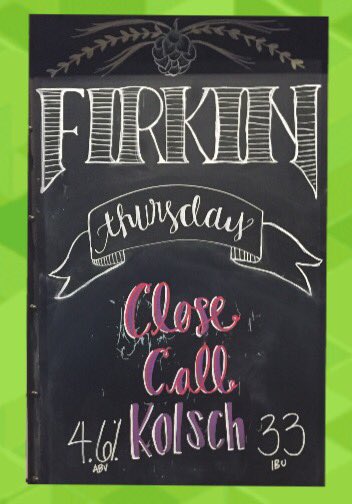 FIRKIN
thursday
Close
Call
4.6% Kolsch 33
ABV IBU